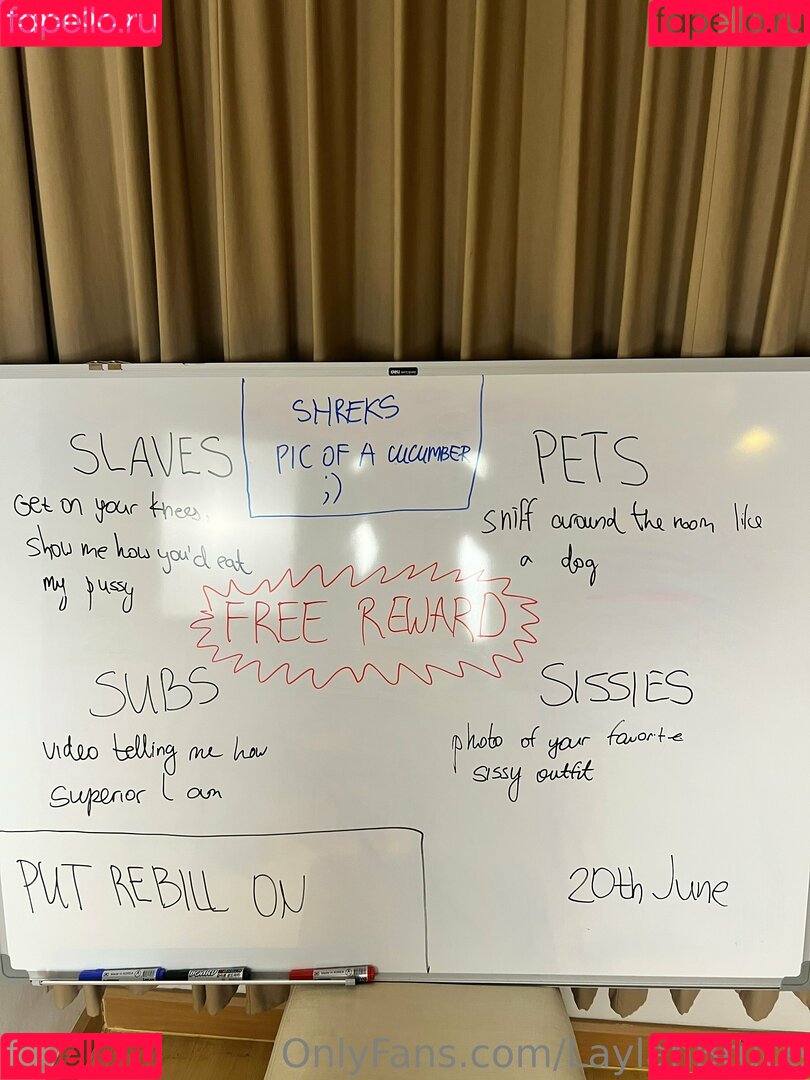 fapello.ru
fapello.ru
deli
SHREKS
PIC OF A CUCUMBER
;)
SLAVES
Get on your knees,
show me how you'd eat
my pussy
PETS
sniff around the room like
a dog
FREE REWARD
SUBS
video telling me how
superior I am
SISSIES
photo of your favorite
sissy outfit
PUT REBILL ON
20th June
OnlyFans.com/Layl
fapello.ru
fapello.ru